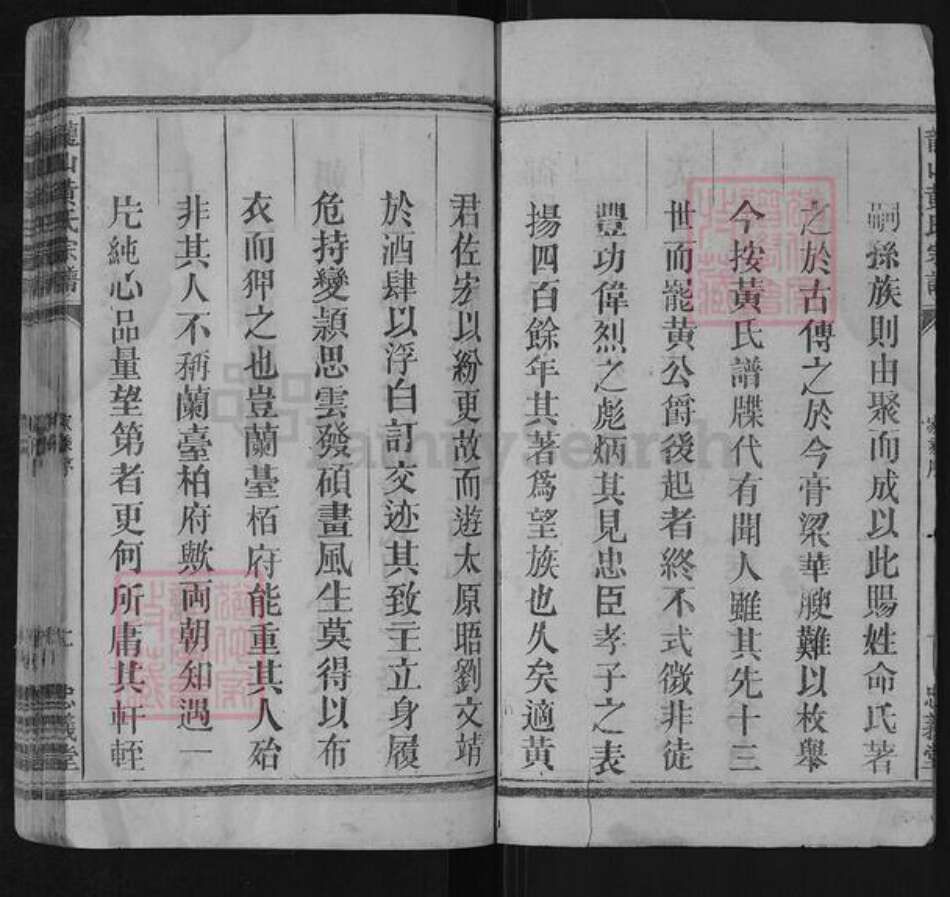 嗣孫族則由聚而成以此賜姓命氏著
之於古傳之於今膏粱華腴難以枚舉
今按黃氏譜牒代有聞人雖其先十三
世而罷黃公爵後起者終不式微非徒
豐功偉烈之彪炳其見忠臣孝子之表
揚四百餘年其著為望族也久矣適黃
君佐宏以紛更故而遊太原晤劉文靖
於酒肆以浮白訂交迹其致主立身履
危持變潁思雲發碩畫風生莫得以布
衣而狎之也豈蘭臺栢府能重其人殆
非其人不稱蘭臺柏府歟兩朝知遇一
片純心品量望第者更何所庸其軒輊
龍山黃氏宗譜
忠義堂
FamilySearch